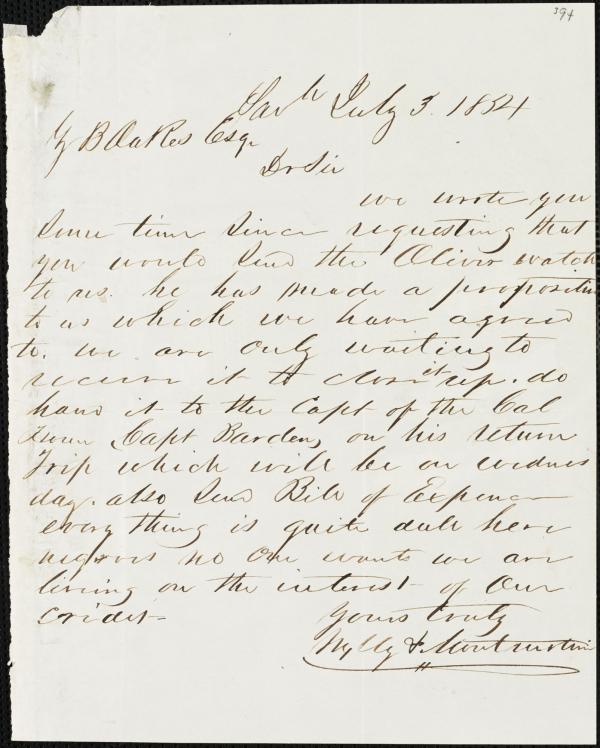 394
Savh July 3. 1854
Z B Oakes Esqr
Dr Sir
we wrote you
some time since requesting that
you would send the Oliver watch
to us. he has made a proposition
to us which we have agreed
to. we are only waiting to
receive it to close it up. do
hand it to the Capt of the Cal
houn Capt Barden, on his return
trip which will be on wednes
day. also send Bill of Expence
every thing is quite dull here
negroes no one wants we are
living on the interest of our
credit
Yours truly
Wylly & Montmollin